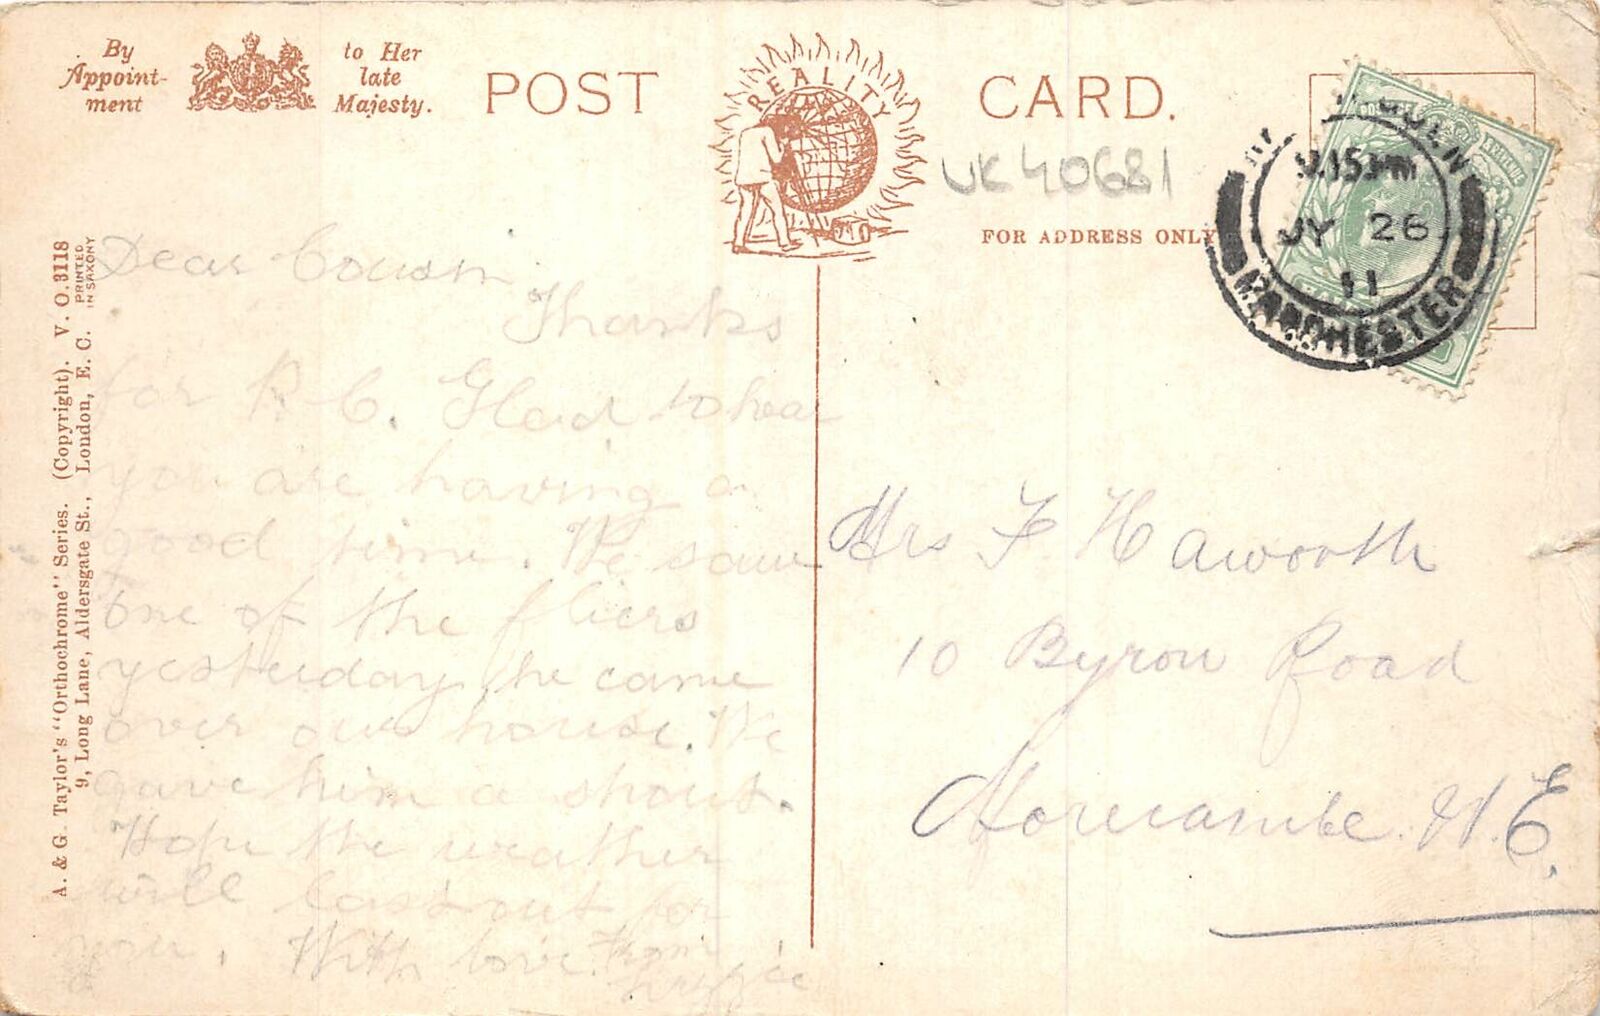 By
Appoint-
ment
to Her
late
Majesty.
POST
REALITY
CARD.
UK 40681
FOR ADDRESS ONLY
.15 PM
JY 26
11
A. & G. Taylor's "Orthochrome" Series. (Copyright). V. O. 3118
9, Long Lane, Aldersgate St., London, E. C.
PRINTED
IN SAXONY
Dear Cousin
Thanks
for P. C. Glad to hear
you are having a
good time. We saw
one of the fliers
yesterday, he came
over our house. We
gave him a shout.
Hope the weather
will last out for
you. With love from
Lizzie
Mrs F Haworth
10 Byron Road
Morecambe. W. E.